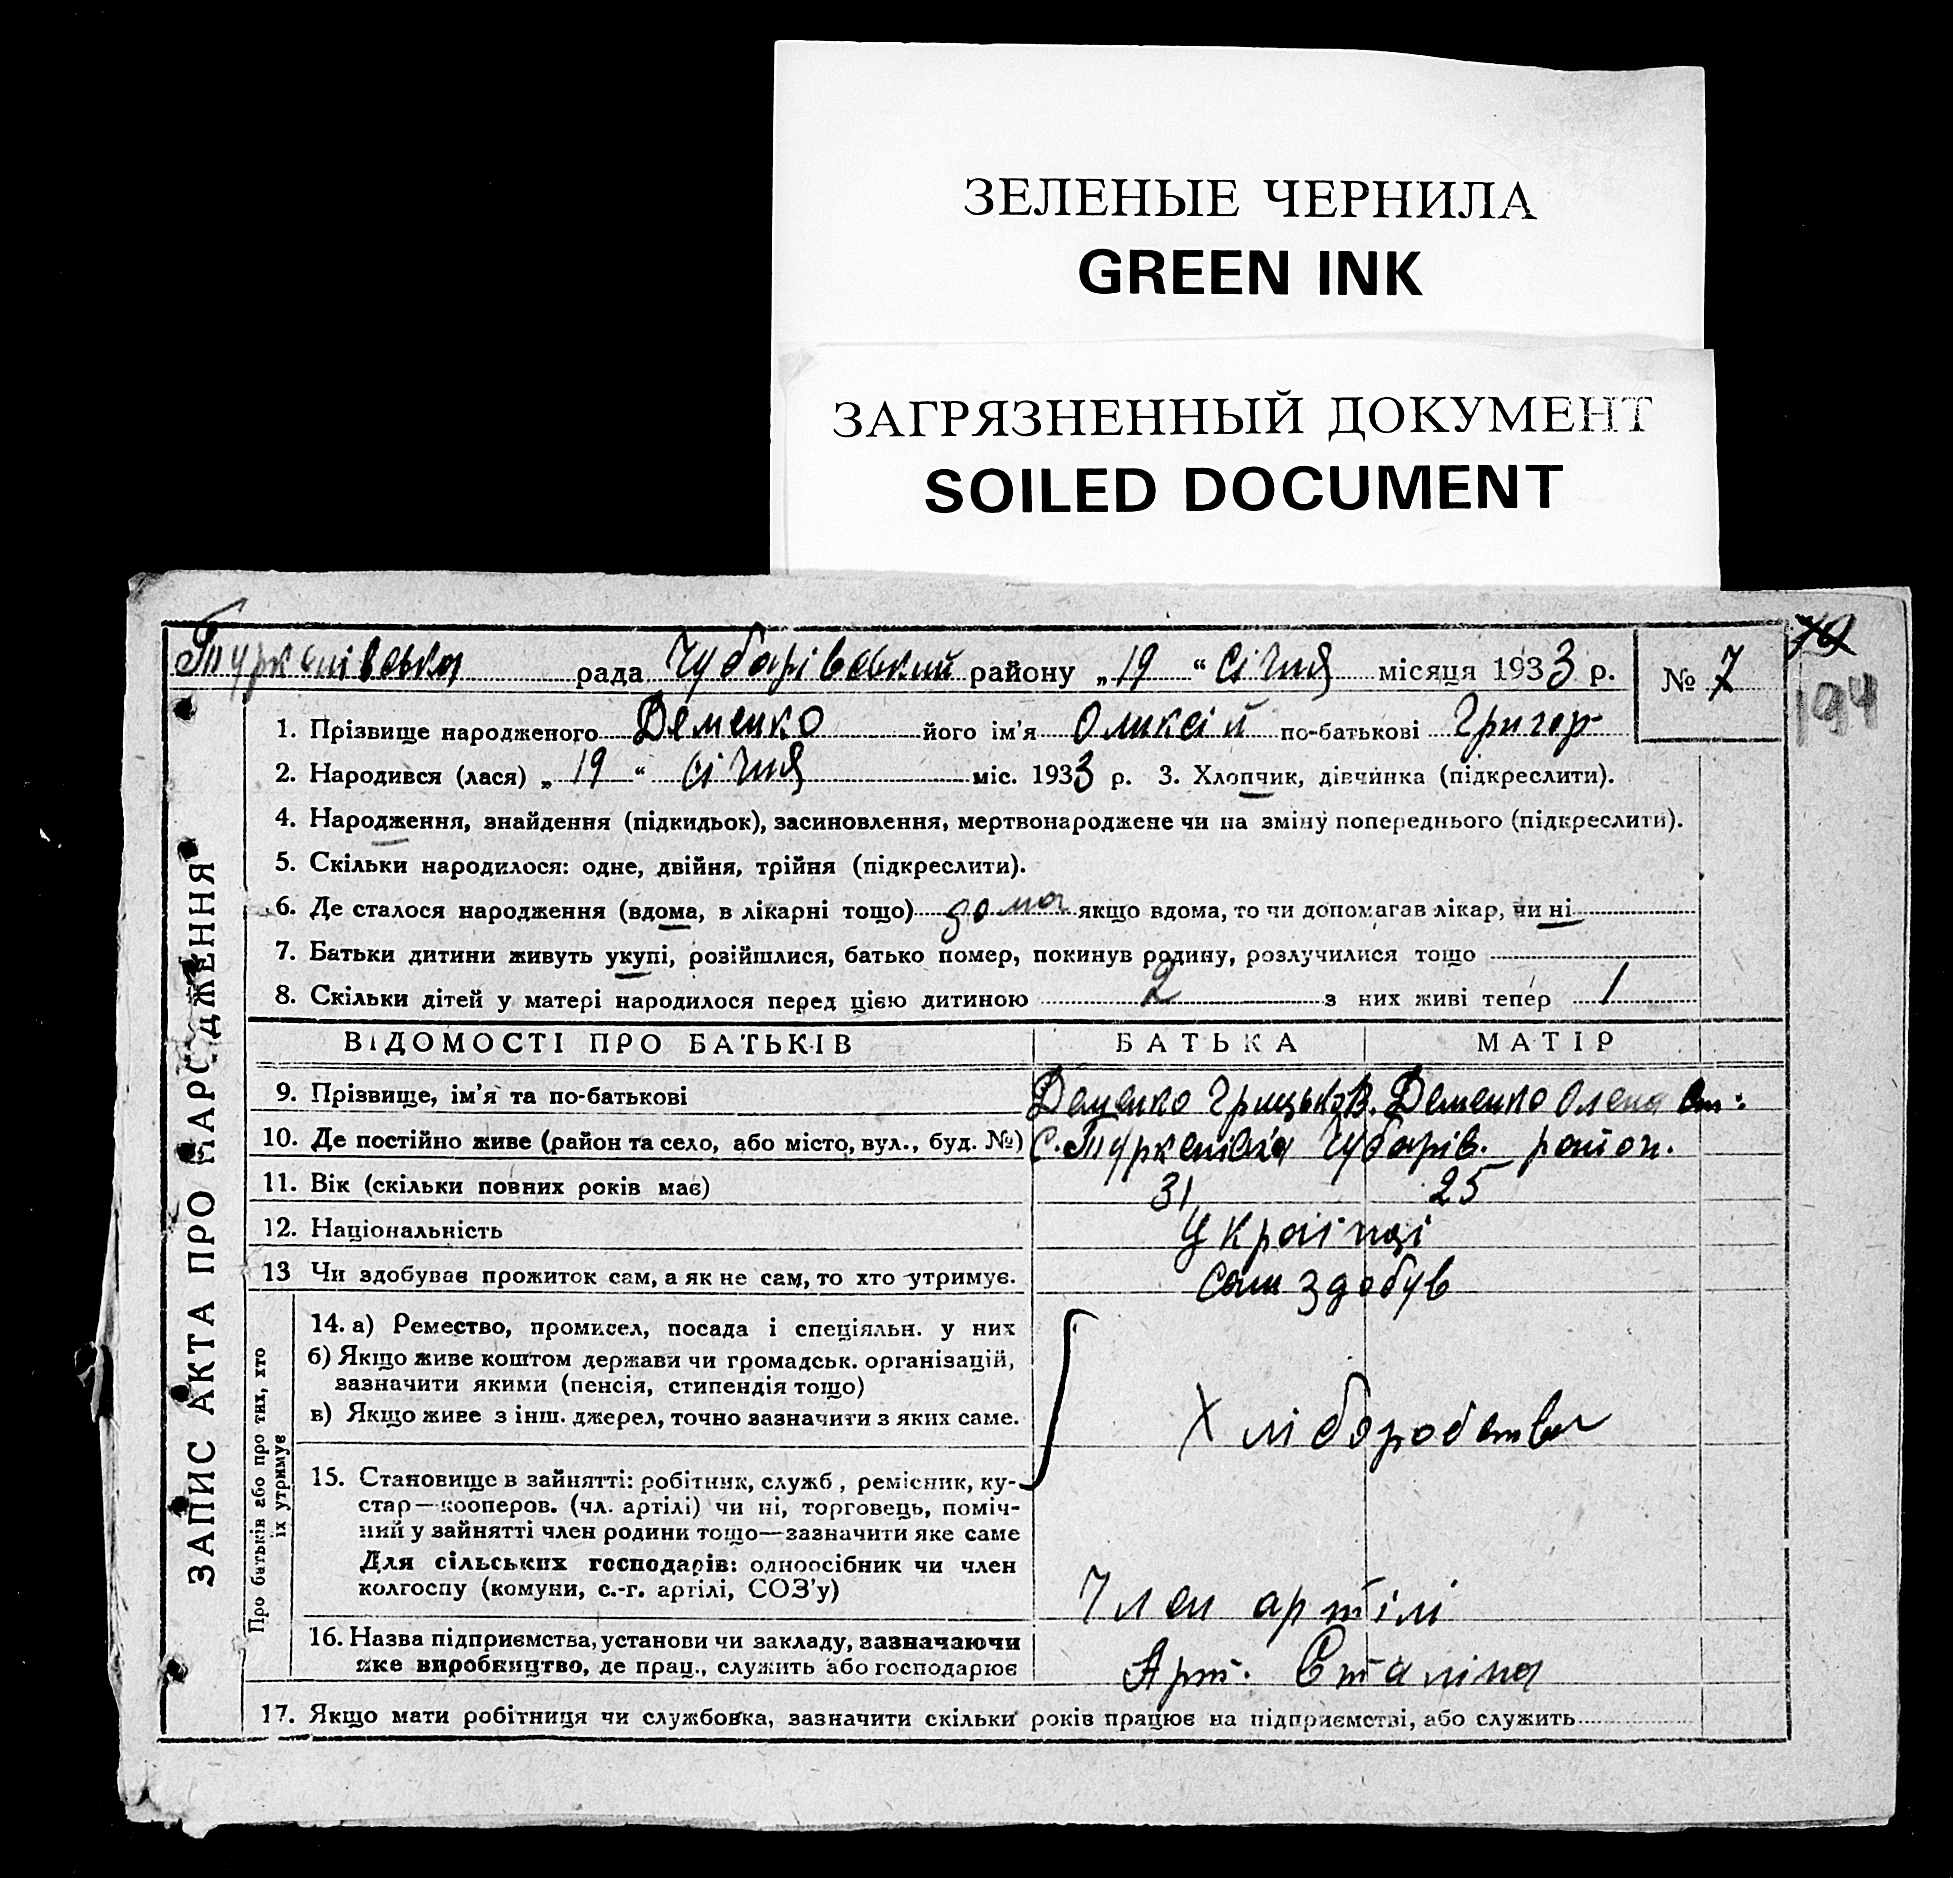 ЗЕЛЕНЫЕ ЧЕРНИЛА
GREEN INK
ЗАГРЯЗНЕННЫЙ ДОКУМЕНТ
SOILED DOCUMENT
70
194
Туркенівська рада Чубарівський району „19“ січня місяця 1933 р. № 7
1. Прізвище народженого Деменко його ім'я Олексій по-батькові Григор-
2. Народився (лася) „19“ січня міс. 1933 р. 3. Хлопчик, дівчинка (підкреслити).
4. Народження, знайдення (підкидьок), засиновлення, мертвонароджене чи на зміну попереднього (підкреслити).
5. Скільки народилося: одне, двійня, трійня (підкреслити).
6. Де сталося народження (вдома, в лікарні тощо) дома якщо вдома, то чи допомагав лікар, чи ні
7. Батьки дитини живуть укупі, розійшлися, батько помер, покинув родину, розлучилися тощо
8. Скільки дітей у матері народилося перед цією дитиною 2 з них живі тепер 1
ВІДОМОСТІ ПРО БАТЬКІВ БАТЬКА МАТІР
9. Прізвище, ім'я та по-батькові Деменко Грицько В. Деменко Олена
10. Де постійно живе (район та село, або місто, вул., буд. №) С. Туркенівка Чубарів. район.
11. Вік (скільки повних років має) 31 25
12. Національність Українці
13 Чи здобуває прожиток сам, а як не сам, то хто утримує. сам здобув
14. а) Ремество, промисел, посада і спеціяльн. у них
б) Якщо живе коштом держави чи громадськ. організацій,
зазначити якими (пенсія, стипендія тощо)
в) Якщо живе з інш. джерел, точно зазначити з яких саме.
Хліборобства
15. Становище в зайнятті: робітник, служб, ремісник, ку-
стар—кооперов. (чл. артілі) чи ні, торговець, поміч-
ний у зайнятті член родини тощо—зазначити яке саме
Для сільських господарів: одноосібник чи член
колгоспу (комуни, с.-г. артілі, СОЗ'у)
Член артілі
16. Назва підприємства, установи чи закладу, зазначаючи
яке виробництво, де прац., служить або господарює
Арт. Сталіна
17. Якщо мати робітниця чи службовка, зазначити скільки років працює на підприємстві, або служить
ЗАПИС АКТА ПРО НАРОДЖЕННЯ
Про батьків або про тих, хто
їх утримує